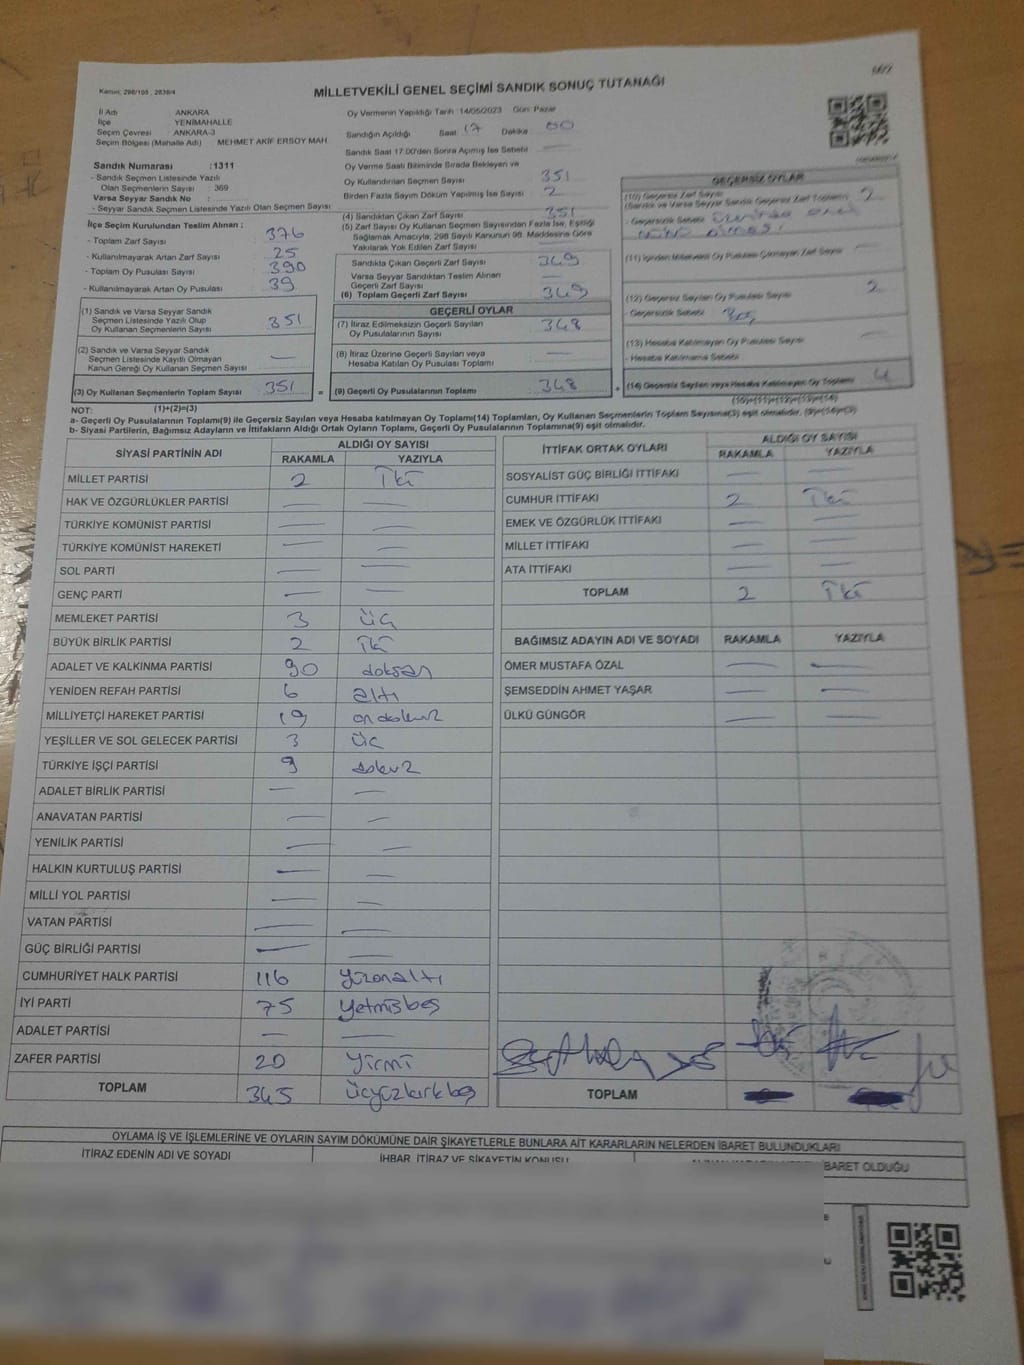 Kanun; 298/105 , 2839/4
MİLLETVEKİLİ GENEL SEÇİMİ SANDIK SONUÇ TUTANAĞI
İl Adı : ANKARA
İlçe : YENİMAHALLE
Seçim Çevresi : ANKARA-3
Seçim Bölgesi (Mahalle Adı) MEHMET AKİF ERSOY MAH
Sandık Numarası :1311
- Sandık Seçmen Listesinde Yazılı
Olan Seçmenlerin Sayısı : 369
Varsa Seyyar Sandık No :
- Seyyar Sandık Seçmen Listesinde Yazılı Olan Seçmen Sayısı
İlçe Seçim Kurulundan Teslim Alınan ;
- Toplam Zarf Sayısı 376
- Kullanılmayarak Artan Zarf Sayısı 25
- Toplam Oy Pusulası Sayısı 390
- Kullanılmayarak Artan Oy Pusulası 39
(1) Sandık ve Varsa Seyyar Sandık
Seçmen Listesinde Yazılı Olup
Oy Kullanan Seçmenlerin Sayısı 351
(2) Sandık ve Varsa Seyyar Sandık
Seçmen Listesinde Kayıtlı Olmayan
Kanun Gereği Oy Kullanan Seçmen Sayısı —
(3) Oy Kullanan Seçmenlerin Toplam Sayısı 351 =
(1)+(2)=(3)
Oy Vermenin Yapıldığı Tarih :14/05/2023 Gün: Pazar
Sandığın Açıldığı Saat 17 Dakika 00
Sandık Saat 17:00'den Sonra Açılmış İse Sebebi —
Oy Verme Saati Bitiminde Sırada Bekleyen ve
Oy Kullandırılan Seçmen Sayısı 351
Birden Fazla Sayım Döküm Yapılmış İse Sayısı 2
(4) Sandıktan Çıkan Zarf Sayısı 351
(5) Zarf Sayısı Oy Kullanan Seçmen Sayısından Fazla İse, Eşitliği
Sağlamak Amacıyla, 298 Sayılı Kanunun 98. Maddesine Göre
Yakılarak Yok Edilen Zarf Sayısı —
Sandıkta Çıkan Geçerli Zarf Sayısı 349
Varsa Seyyar Sandıktan Teslim Alınan
Geçerli Zarf Sayısı —
(6) Toplam Geçerli Zarf Sayısı 349
GEÇERLİ OYLAR
(7) İtiraz Edilmeksizin Geçerli Sayılan
Oy Pusulalarının Sayısı 348
(8) İtiraz Üzerine Geçerli Sayılan veya
Hesaba Katılan Oy Pusulası Toplamı —
(9) Geçerli Oy Pusulalarının Toplamı 348 +
GEÇERSİZ OYLAR
(10) Geçersiz Zarf Sayısı
(Sandık ve Varsa Seyyar Sandık Geçersiz Zarf Toplamı) 2
- Geçersizlik Sebebi
(11) İçinden Milletvekili Oy Pusulası Çıkmayan Zarf Sayısı —
(12) Geçersiz Sayılan Oy Pusulası Sayısı 2
- Geçersizlik Sebebi
(13) Hesaba Katılmayan Oy Pusulası Sayısı —
- Hesaba Katılmama Sebebi
(14) Geçersiz Sayılan veya Hesaba Katılmayan Oy Toplamı 4
(10)+(11)+(12)+(13)=(14)
NOT:
a- Geçerli Oy Pusulalarının Toplamı(9) ile Geçersiz Sayılan veya Hesaba katılmayan Oy Toplamı(14) Toplamları, Oy Kullanan Seçmenlerin Toplam Sayısına(3) eşit olmalıdır. (9)+(14)=(3)
b- Siyasi Partilerin, Bağımsız Adayların ve İttifakların Aldığı Ortak Oyların Toplamı, Geçerli Oy Pusulalarının Toplamına(9) eşit olmalıdır.
SİYASİ PARTİNİN ADI ALDIĞI OY SAYISI
RAKAMLA YAZIYLA
MİLLET PARTİSİ 2 İki
HAK VE ÖZGÜRLÜKLER PARTİSİ — —
TÜRKİYE KOMÜNİST PARTİSİ — —
TÜRKİYE KOMÜNİST HAREKETİ — —
SOL PARTİ — —
GENÇ PARTİ — —
MEMLEKET PARTİSİ 3 üç
BÜYÜK BİRLİK PARTİSİ 2 iki
ADALET VE KALKINMA PARTİSİ 90 doksan
YENİDEN REFAH PARTİSİ 6 altı
MİLLİYETÇİ HAREKET PARTİSİ 19 ondokuz
YEŞİLLER VE SOL GELECEK PARTİSİ 3 üç
TÜRKİYE İŞÇİ PARTİSİ 9 dokuz
ADALET BİRLİK PARTİSİ — —
ANAVATAN PARTİSİ — —
YENİLİK PARTİSİ — —
HALKIN KURTULUŞ PARTİSİ — —
MİLLİ YOL PARTİSİ — —
VATAN PARTİSİ — —
GÜÇ BİRLİĞİ PARTİSİ — —
CUMHURİYET HALK PARTİSİ 116 yüzonaltı
İYİ PARTİ 75 yetmişbeş
ADALET PARTİSİ — —
ZAFER PARTİSİ 20 yirmi
TOPLAM 345 üçyüzkırkbeş
İTTİFAK ORTAK OYLARI ALDIĞI OY SAYISI
RAKAMLA YAZIYLA
SOSYALİST GÜÇ BİRLİĞİ İTTİFAKI — —
CUMHUR İTTİFAKI 2 İki
EMEK VE ÖZGÜRLÜK İTTİFAKI — —
MİLLET İTTİFAKI — —
ATA İTTİFAKI — —
TOPLAM 2 İki
BAĞIMSIZ ADAYIN ADI VE SOYADI RAKAMLA YAZIYLA
ÖMER MUSTAFA ÖZAL — —
ŞEMSEDDİN AHMET YAŞAR — —
ÜLKÜ GÜNGÖR — —
TOPLAM
OYLAMA İŞ VE İŞLEMLERİNE VE OYLARIN SAYIM DÖKÜMÜNE DAİR ŞİKAYETLERLE BUNLARA AİT KARARLARIN NELERDEN İBARET BULUNDUKLARI
İTİRAZ EDENİN ADI VE SOYADI İHBAR, İTİRAZ VE ŞİKAYETİN KONUSU İBARET OLDUĞU